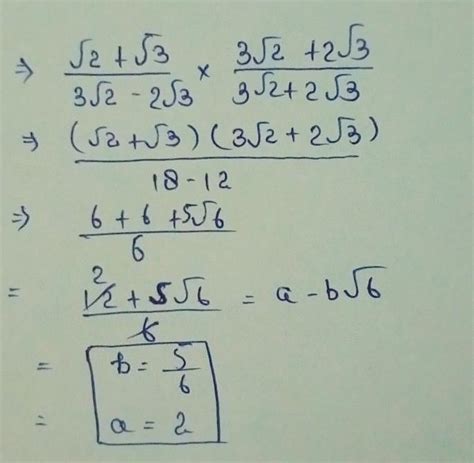 ⇒ (√2 + √3)/(3√2 - 2√3) × (3√2 + 2√3)/(3√2 + 2√3)
⇒ (√2 + √3)(3√2 + 2√3)/(18 - 12)
⇒ (6 + 6 + 5√6)/6
= 2 (12 + 5√6)/6 = a - b√6
= b = 5/6
= a = 2